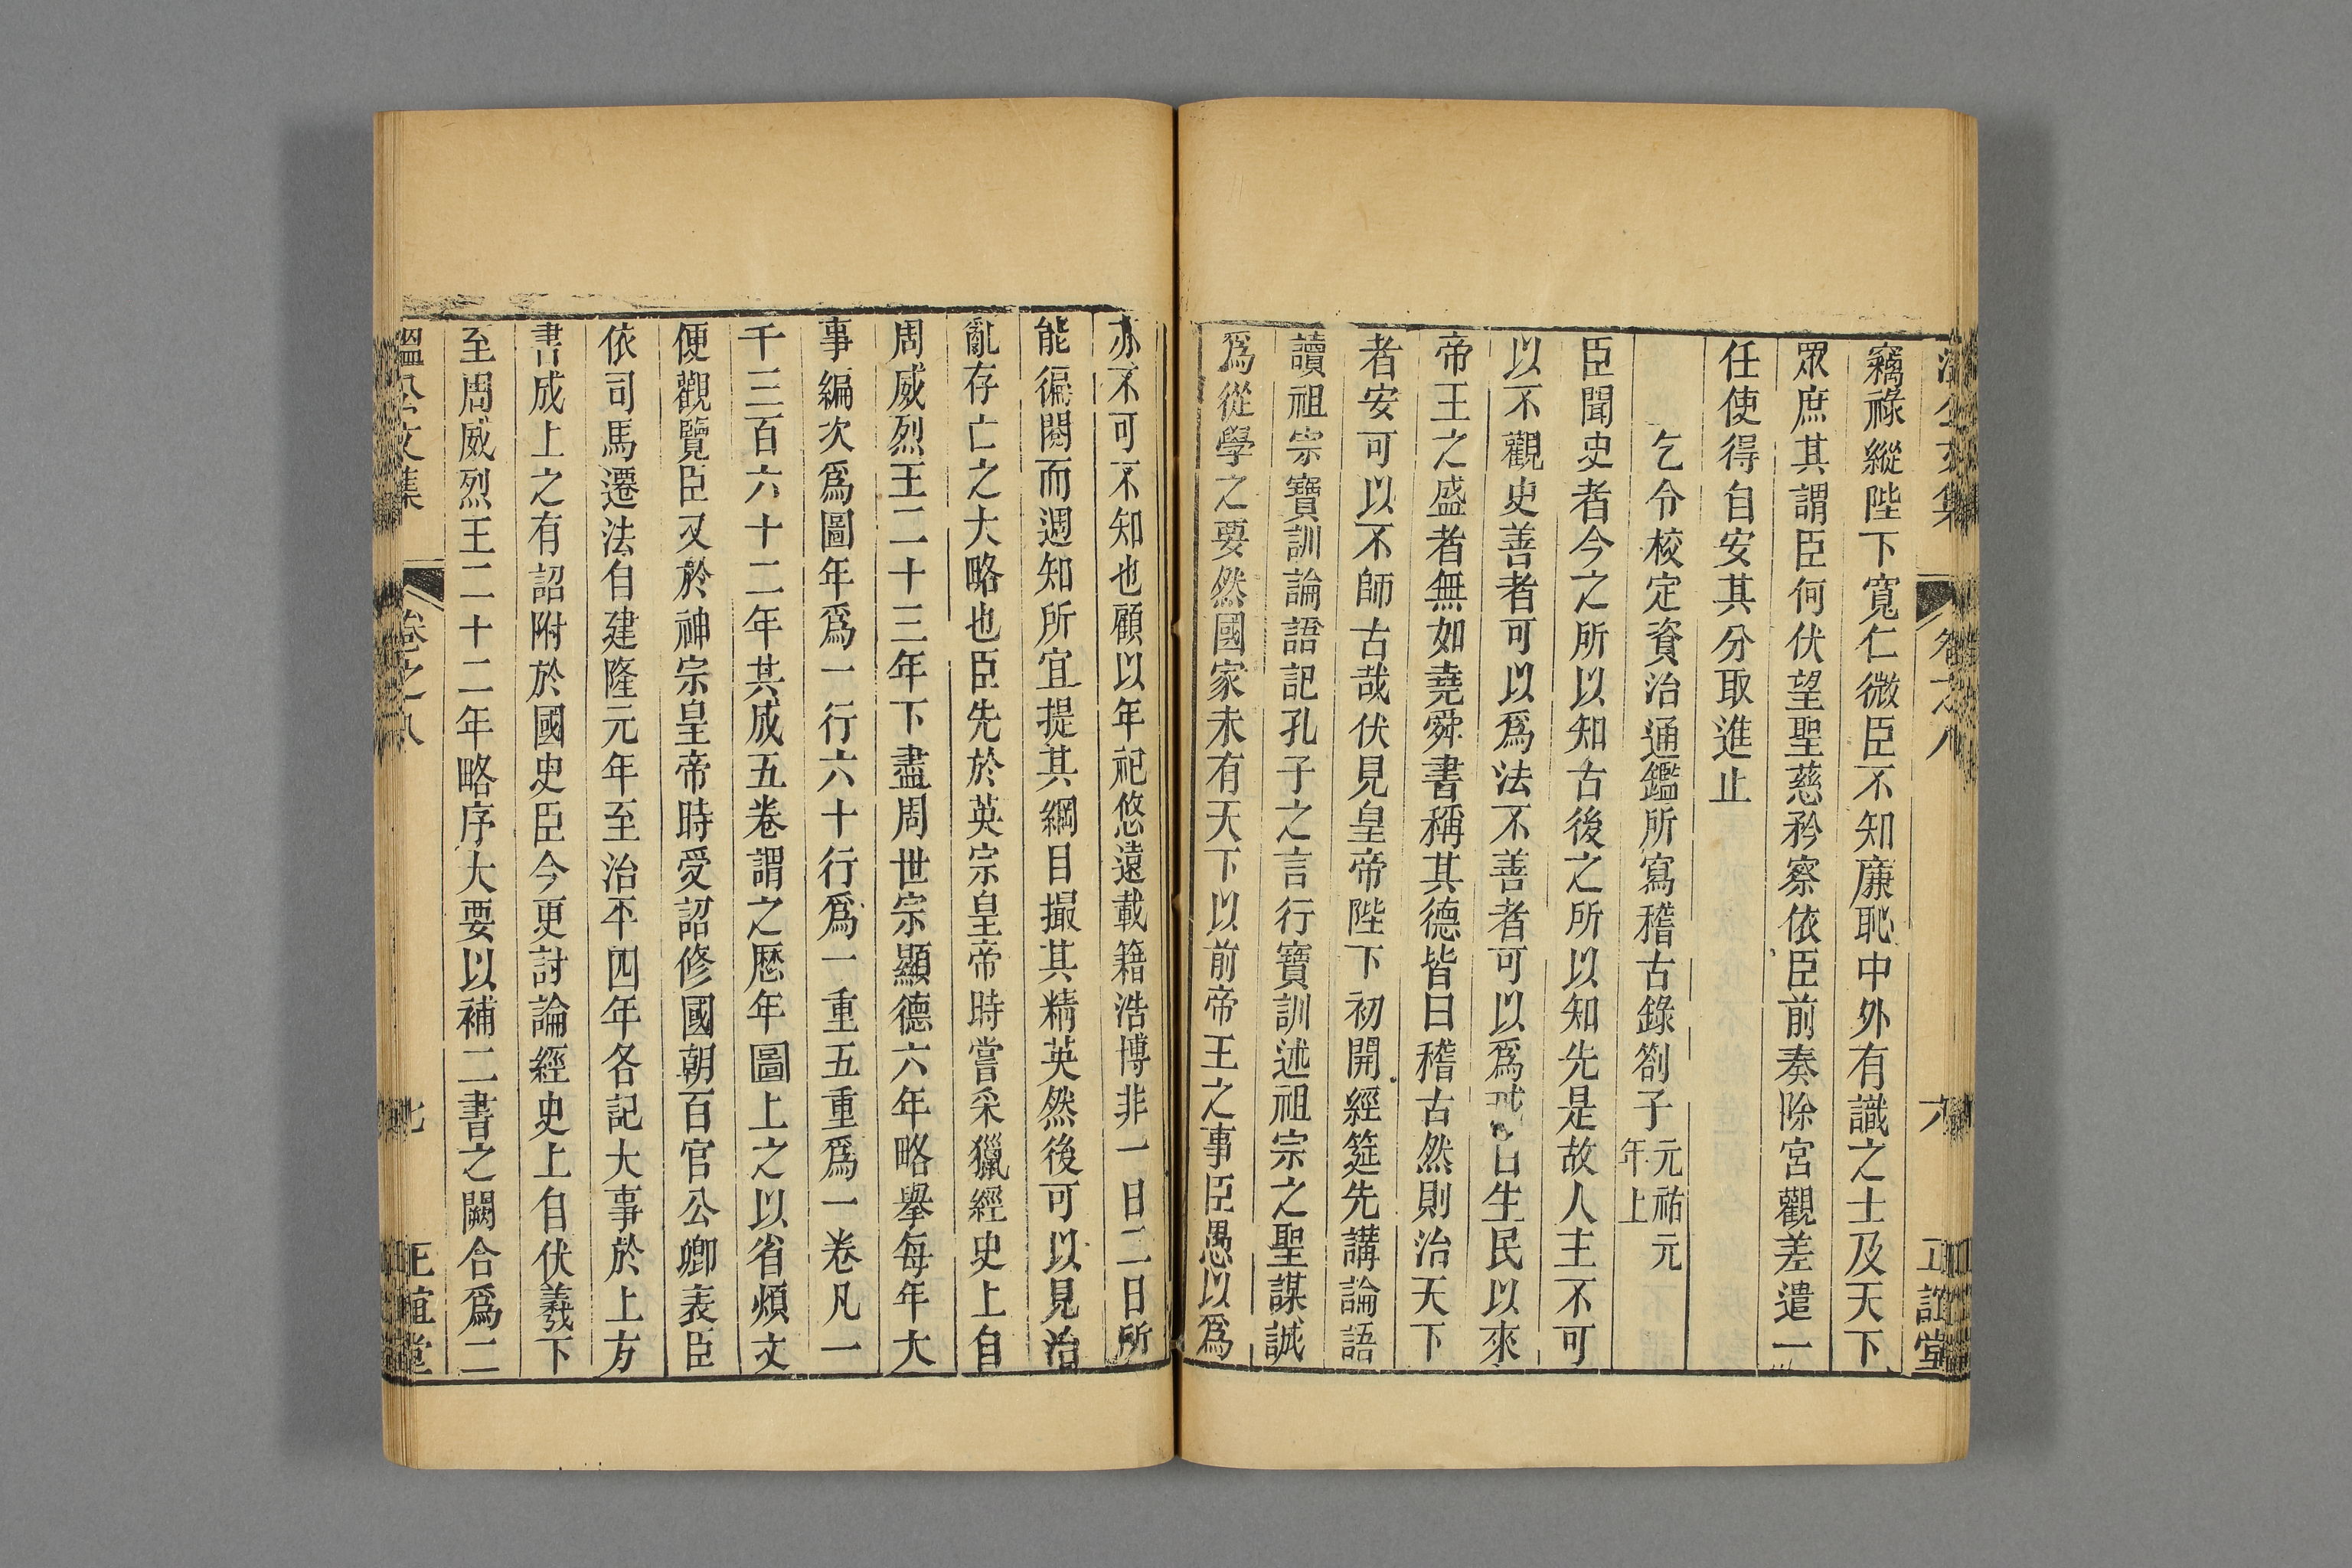 溫公文集
卷之八
六
正誼堂
竊祿縱陛下寬仁微臣不知廉恥中外有識之士及天下
眾庶其謂臣何伏望聖慈矜察依臣前奏除宮觀差遣一
任使得自安其分取進止
乞令校定資治通鑑所寫稽古錄劄子元祐元年上
臣聞史者今之所以知古後之所以知先是故人主不可
以不觀史善者可以為法不善者可以為戒自生民以來
帝王之盛者無如堯舜書稱其德皆曰稽古然則治天下
者安可以不師古哉伏見皇帝陛下初開經筵先講論語
讀祖宗寶訓論語記孔子之言行寶訓述祖宗之聖謀誠
爲從學之要然國家未有天下以前帝王之事臣愚以爲
亦不可不知也顧以年祀悠遠載籍浩博非一日二日所
能徧閱而週知所宜提其綱目撮其精英然後可以見治
亂存亡之大略也臣先於英宗皇帝時嘗采獵經史上自
周威烈王二十三年下盡周世宗顯德六年略舉每年大
事編次爲圖年爲一行六十行爲一重五重爲一卷凡一
千三百六十二年其成五卷謂之歷年圖上之以省煩文
便觀覽臣又於神宗皇帝時受詔修國朝百官公卿表臣
依司馬遷法自建隆元年至治平四年各記大事於上方
書成上之有詔附於國史臣今更討論經史上自伏羲下
至周威烈王二十二年略序大要以補二書之闕合爲二
溫公文集
卷之八
七
正誼堂